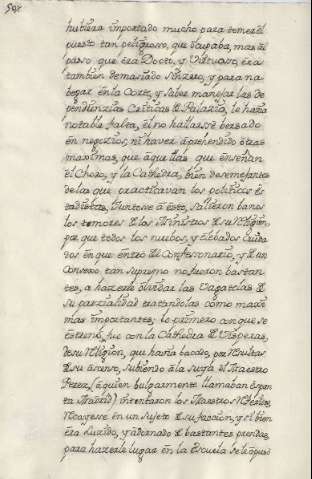 hubiera importado mucho para temer el
puesto tan peligroso, que ocupaba, mas al
passo que era Docto, y Virtuoso, era
tambien demasiado sinzero, y para na-
begar en la Corte, y saber manejar las de
pendienzias Criticas de Palazio, le hazia
notable falta, el no hallarse bersado
en negozios, ni haver aprehendido otras
maximas, que aquellas que enseñan
el Choro, y la Cathedra, bien desemejantes
de las que practicavan los politicos es
tadistas, Juntose a esto, salieron banos
los temores de los Ministros de su Religion,
que todos los nuebos, y elebados cuida
dos en que entró el Confesonario, y de un
Consexo tan Supremo no fueron bastan
tes, a hazerle olvidar las
de su parzialidad tratandolas como maxi
mas importantes; lo primero con que se
estrenó, fue con la Cathedra de Visperas,
de su Religion, que havia bacado, por
de su asenso, subiendo a la suya el Maestro
Perez, (a quien bulgarmente llamaban Espan
ta Madrid) intentaron los Maestros
Recayesse en un Sujeto de su faccion, y si bien
era Luzido, y adornado de bastantes prendas,
para hazerle lugar en la Escuela se le opuso